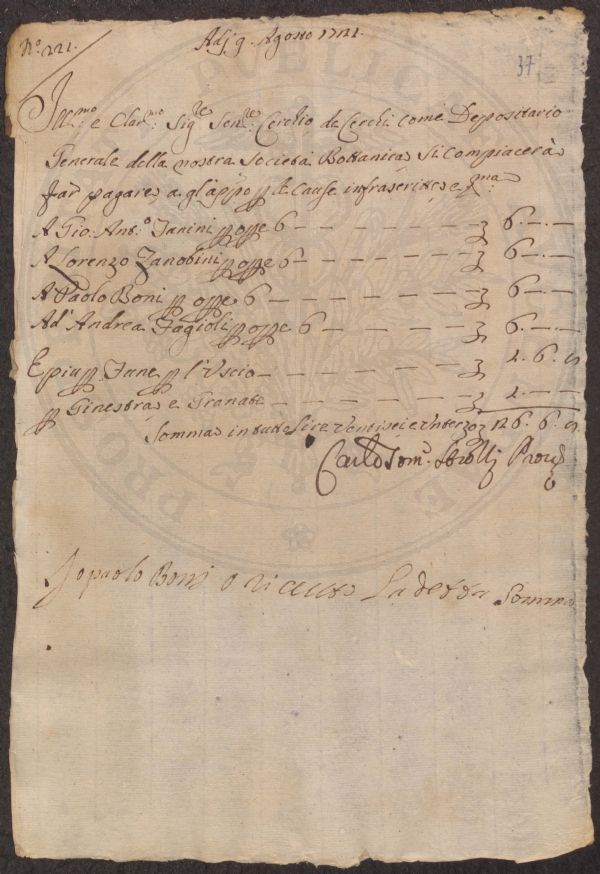 No. 221.
Adj 9. Agosto 1721.
37
Ill:mo e Clar:mo Sig:re Sen:re Cerchio de Cerchi come Depositario
Generale della nostra Società Bottanica si compiacerà
far pagare a gl'app.o p. le cause infrascritte e p.ma
A Gio: Ant.o Janini p. ope 6 — — — — — — — 6. — . —
A Lorenzo Zanobini p. ope 6 — — — — — — 6. — . —
A Paolo Boni p. ope 6 — — — — — — — 6. — . —
Ad' Andrea Fagioli p. ope 6 — — — — — — 6. — . —
E piu p. Fune p. l'Uscio — — — — — — —. 6. 8
p. Ginestra e Granate — — — — — — 2. — . —
Somma in tutto Lire Ventisei e Un terzo 26. 6. 8
Carlo Tom.o Strozzi Prov.
Jo paolo Boni o ricevuto La detta Somma
PUBLICA